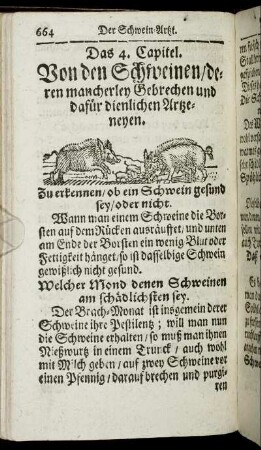 664 Der Schwein-Artzt.
Das 4. Capitel.
Von den Schweinen/de-
ren mancherley Gebrechen und
dafür dienlichen Artze-
neyen.
Zu erkennen/ob ein Schwein gesund
sey/oder nicht.
Wann man einem Schweine die Bor-
sten auf dem Rücken ausräufft, und unten
am Ende der Borsten ein wenig Blut oder
Fettigkeit hänget, so ist dasselbige Schwein
gewißlich nicht gesund.
Welcher Mond denen Schweinen
am schädlichsten sey.
Der Brach-Monat ist insgemein derer
Schweine ihre Pestilentz; will man nun
die Schweine erhalten/so muß man ihnen
Nießwurtz in einem Trunck/ auch wohl
mit Milch geben/auf zwey Schweine vor
einen Pfennig/darauf brechen und purgi-
ren